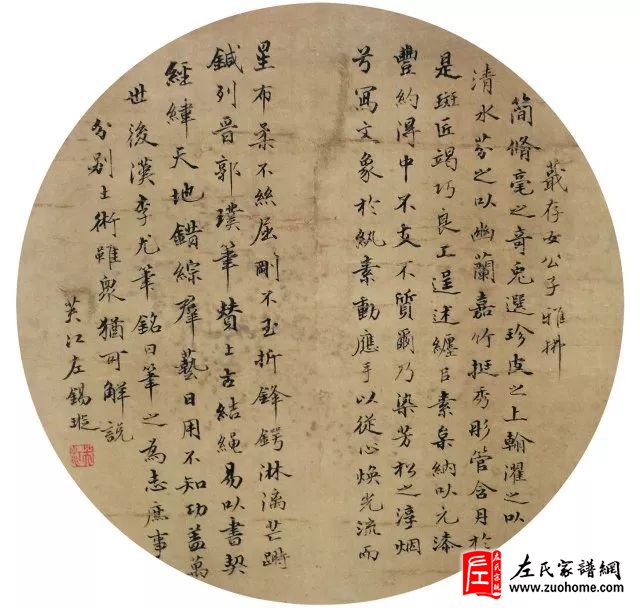 存女公子雅拂
簡脩毫之奇兔選珍皮之上翰濯之以
清水芬之以幽蘭嘉竹挺秀彤管含丹於
是斑匠竭巧良工逞述纏㠯素枲納以元漆
豐約得中不文不質爾乃染芳松之淳烟
兮寫文象於紈素動應手以從心煥光流而
星布柔不絲屈剛不玉折鋒鍔淋漓芒跱
鍼列晉郭璞筆贊上古結繩易以書契
經緯天地錯綜羣藝日用不知功蓋萬
世後漢李尤筆銘曰筆之為志庶事
分別術雖衆猶可解說
江左錫璇
左氏家譜網
www.zuohome.com